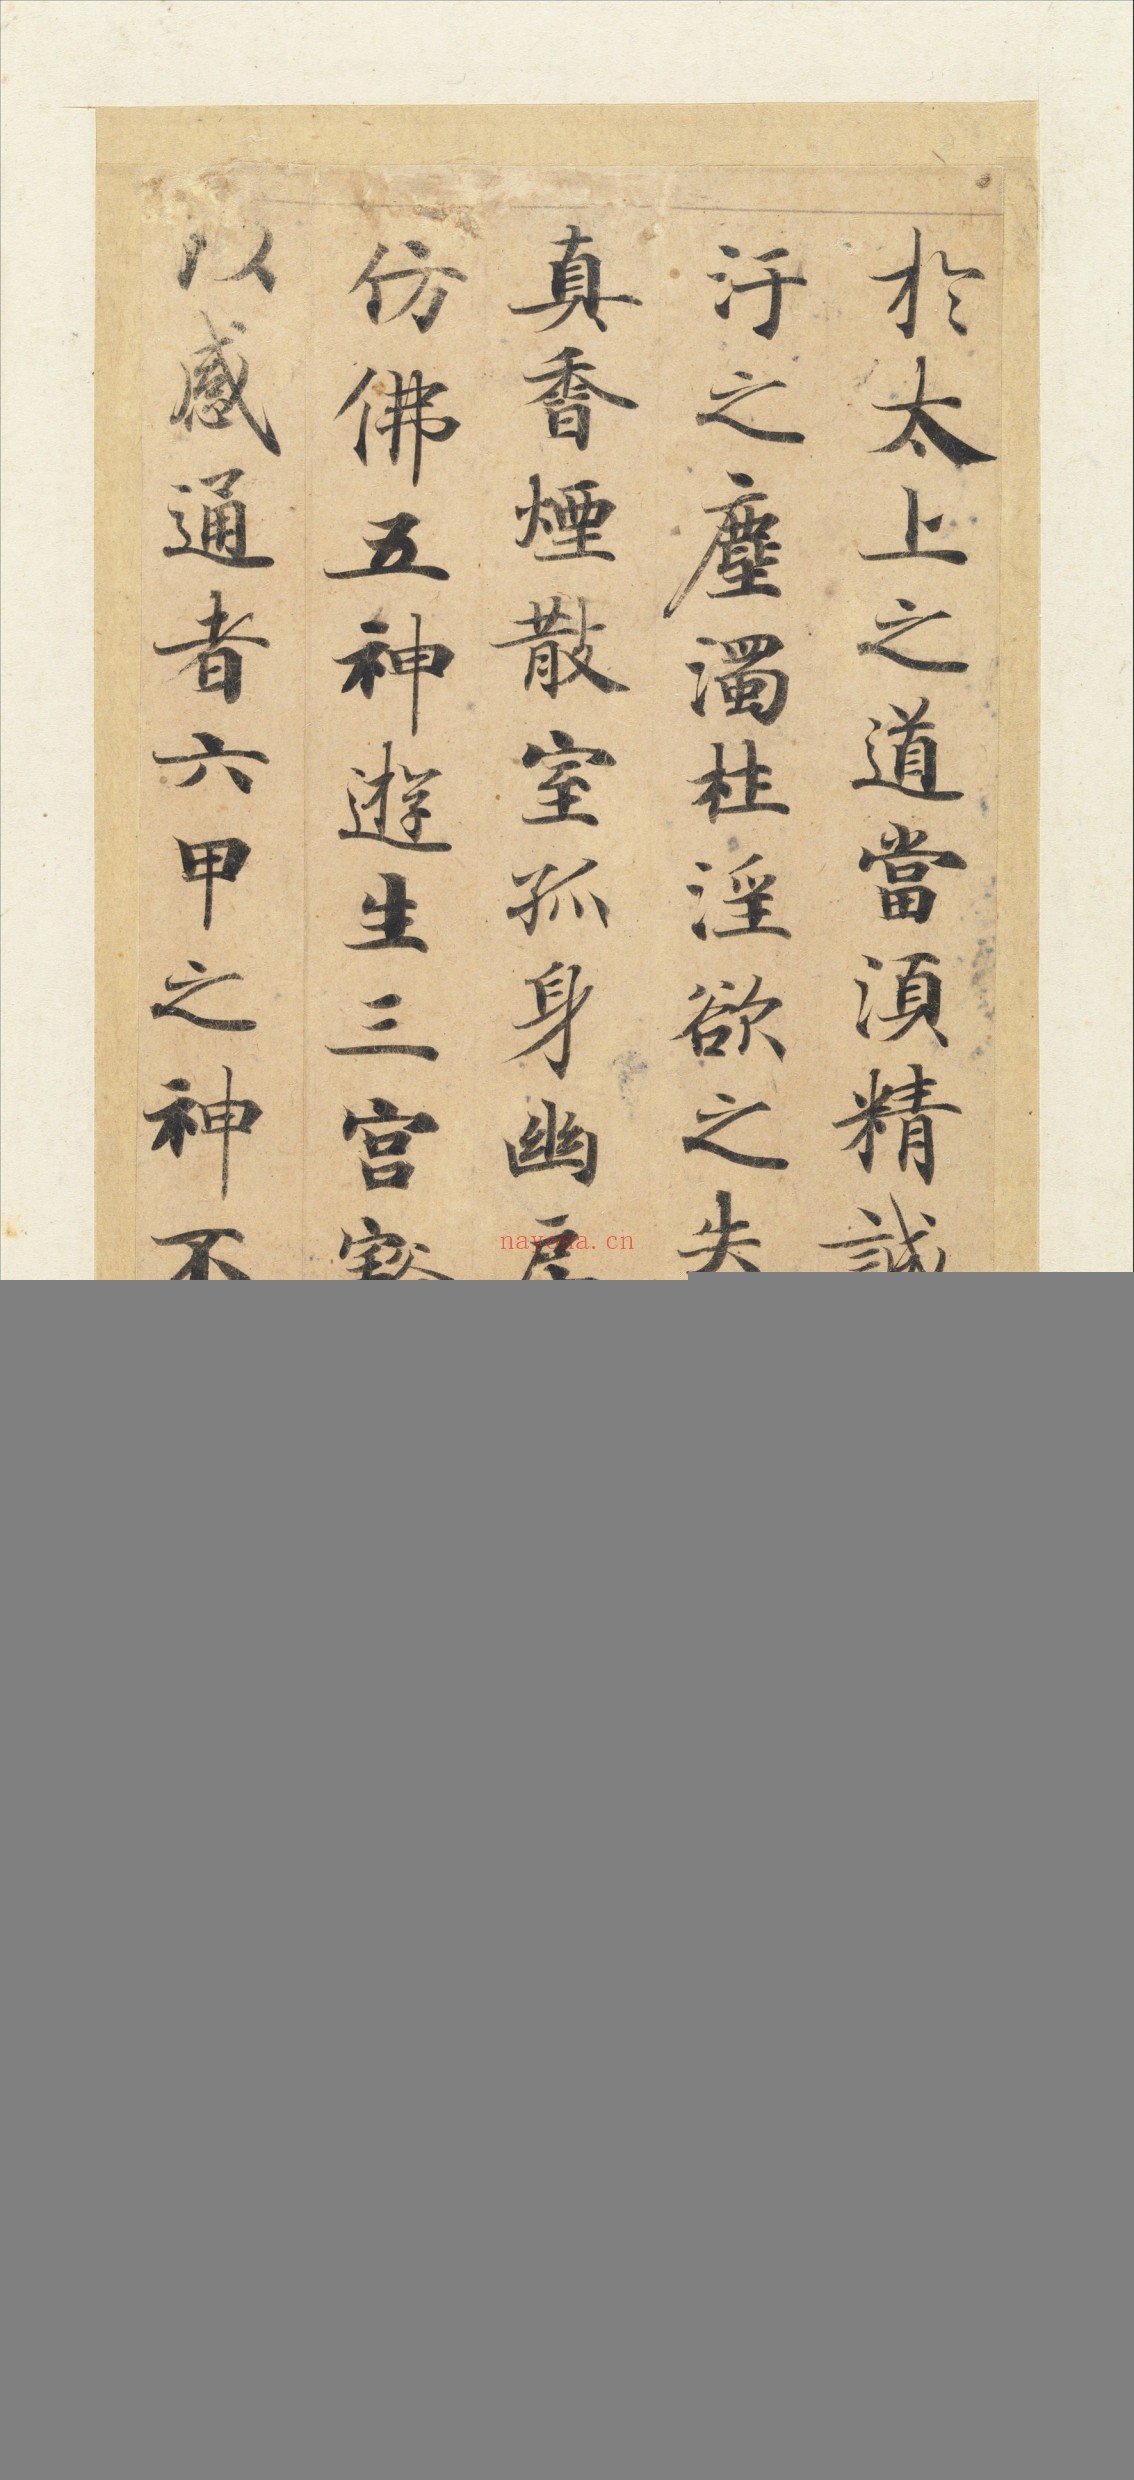 於太上之道當湏精誠
汙之塵濁杜淫欲之失
真香煙散室孤身幽
仿佛五神遊生三宮豁
以感通者六甲之神不
nayona.cn